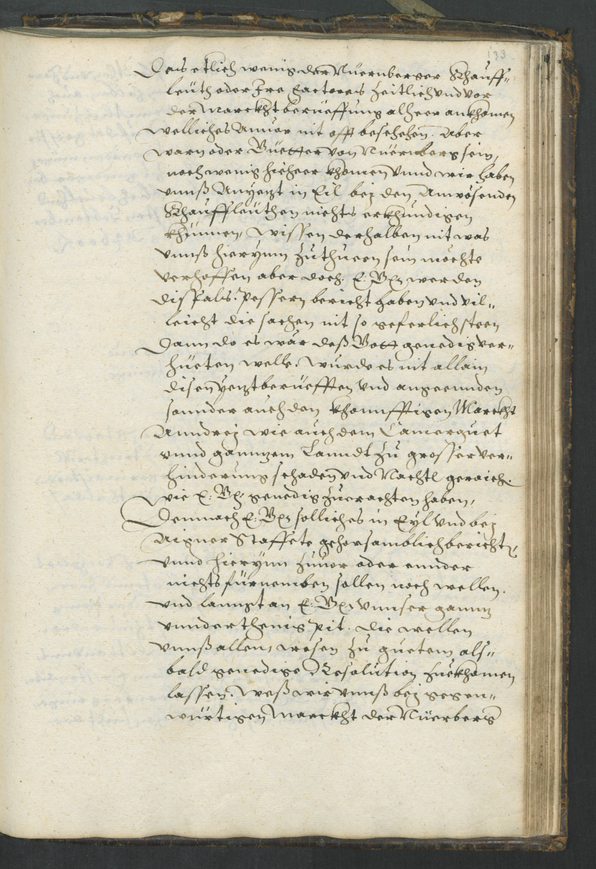 133
Das etlich wenig der Nuernberger Khauff-
leüth oder Ire Factores zeitlich vnd vor
der Marckht berueffung alheer ankhomen
welliches Annder nit offt beschehen. Aber
waren oder Guetter von Nürnberg sein
noch wenig hieheer khomen vnnd wir haben
vnnß Anyezt in Eil bei den Anwösenden
Khauffleüthen nichts erkhundigen
khünnen, wissen derhalben nit was
vnnß hierynn zuthuen sein möchte
verhoffen aber doch E: Gn: werden
dißfals pessern bericht haben vnd vil-
leicht die sachen nit so geferlich steen
Dann do es war deß Gott genedig ver-
hüeten welle, wurde es nit allain
disen yezt berüefften vnd angeennden
sonnder auch den khonnfftigen Marckht
Anndrej wie auch dem Camerguet
vnnd gannzem Lanndt zu grosser ver-
hinderung schaden vnd Nachtl geraich:
wie E: Gn: genedig zuerachten haben,
Demnach E: Gn: solliches in Eyl vnd bej
Aigner Staffete gehorsamblich bericht
vnnd hierynn zuuor oder ennder
nichts fürnemben sollen noch wellen.
vnd lanngt an E: Gn: vnnser gannz
vnnderthenig pit. die wellen
vnnß allem wesen zu guetem als-
bald genedige Resolution zuekhomen
lassen, weß wir vnnß bej gegen-
würtigen Marckht der Nürnberg